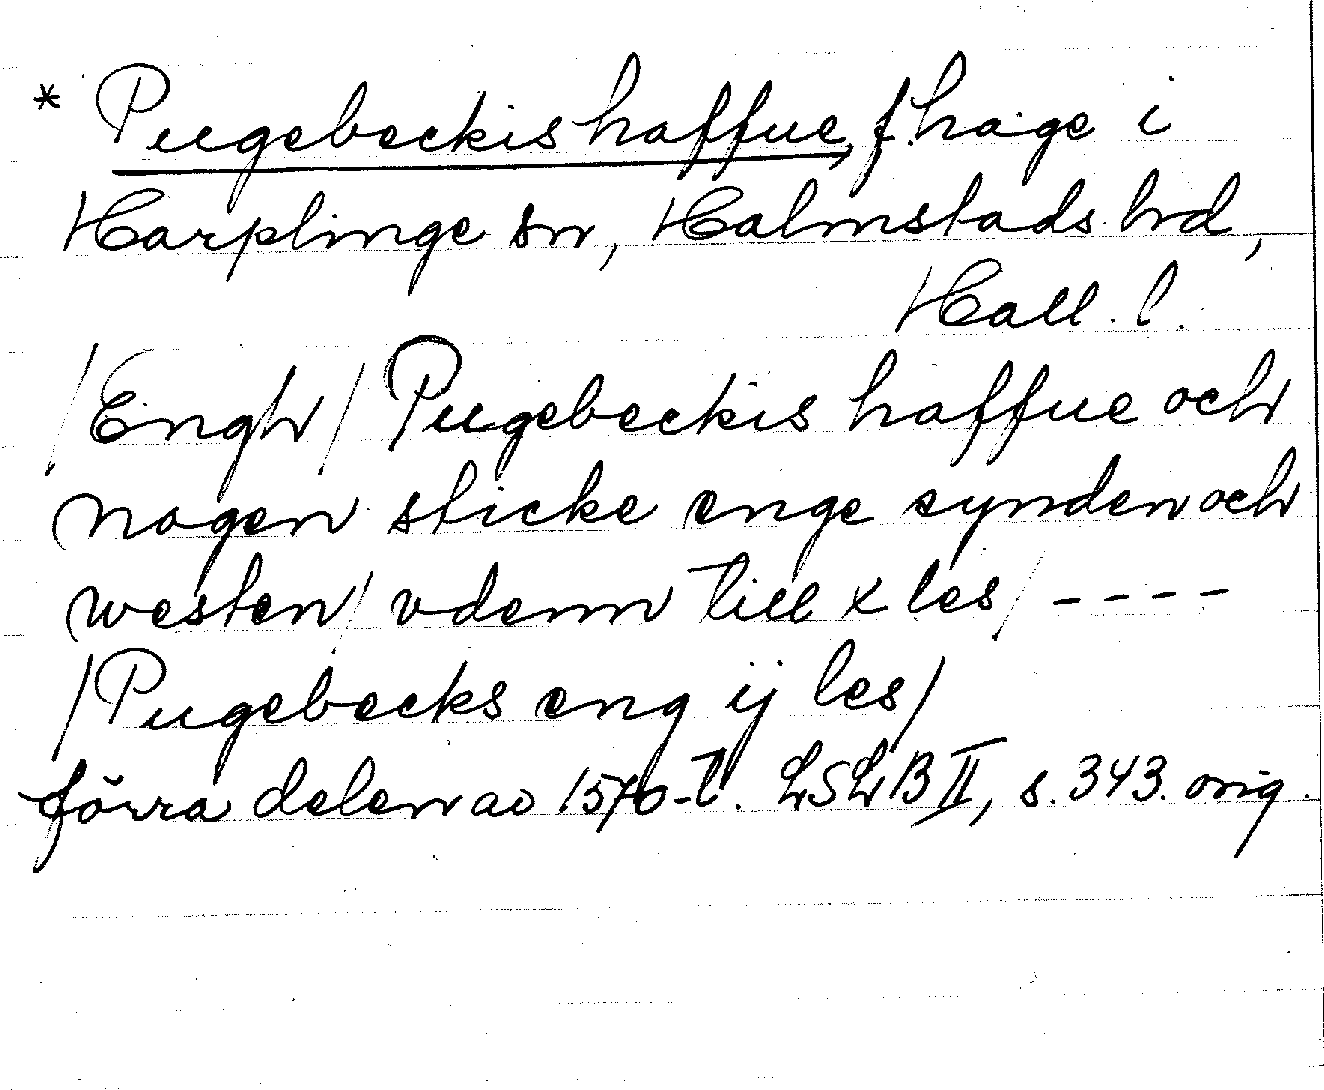 * Pugebeckis haffue, f. hage i
Harplinge sn, Halmstads hd,
Hall. l.
/Engh/ Pugebeckis haffue och
nogen sticke enge synden och
westen/ vdenn till x les/ ----
/Pugebecks eng ij les/
förra delen av 1570-t. LSLB II, s. 343. orig.